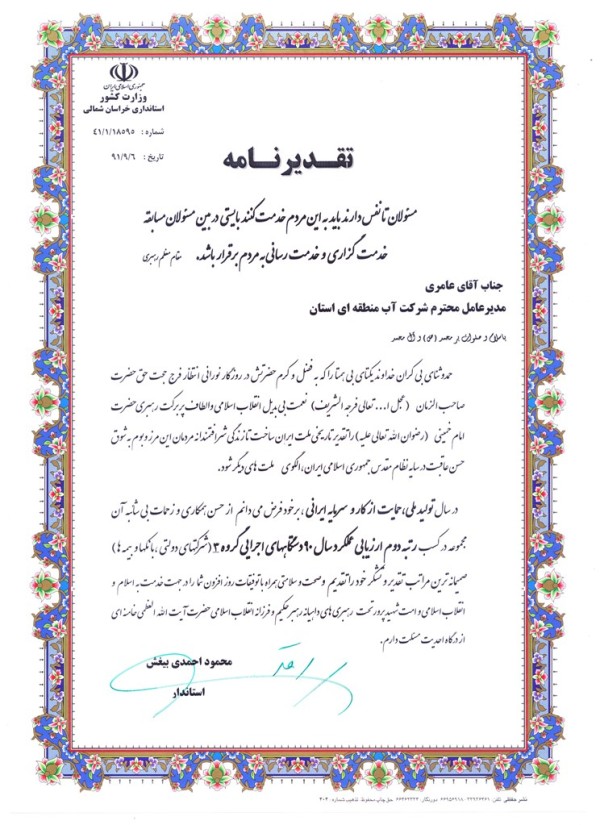 جمهوری اسلامی ایران
وزارت کشور
استانداری خراسان شمالی
شماره : ۴۱/۱/۱۸۵۹۵
تاریخ : ۹۱/۹/۶
تقدیرنامه
مسئولان تا نفس دارند باید به این مردم خدمت کنند بایستی در بین مسئولان مسابقه
خدمت گزاری و خدمت رسانی به مردم برقرار باشد. مقام معظم رهبری
جناب آقای عامری
مدیرعامل محترم شرکت آب منطقه ای استان
باسلام و صلوات بر محمد (ص) و آل محمد
حمد و ثنای بی کران خداوند یکتای بی همتا را که به فضل و کرم حضرتش در روزگار نورانی انتظار فرج حجت حق حضرت
صاحب الزمان (عجل ا... تعالی فرجه الشریف) نعمت بی بدیل انقلاب اسلامی و الطاف پر برکت رهبری حضرت
امام خمینی (رضوان الله تعالی علیه) را تقدیر تاریخی ملت ایران ساخت تا زندگی شرافتمندانه مردمان این مرز و بوم به شوق
حسن عاقبت در سایه نظام مقدس جمهوری اسلامی ایران، الگوی ملت های دیگر شود.
در سال تولید ملی، حمایت از کار و سرمایه ایرانی، بر خود فرض می دانم از حسن همکاری و زحمات بی شائبه آن
مجموعه در کسب رتبه دوم ارزیابی عملکرد سال ۹۰ دستگاههای اجرایی گروه ۳ (شرکتهای دولتی، بانکها و بیمه ها)
صمیمانه ترین مراتب تقدیر و تشکر خود را تقدیم و صحت و سلامتی همراه با توفیقات روز افزون شما را در جهت خدمت به اسلام و
انقلاب اسلامی و امت شهید پرور تحت رهبری های داهیانه رهبر حکیم و فرزانه انقلاب اسلامی حضرت آیت الله العظمی خامنه ای
از درگاه احدیت مسئلت دارم.
محمود احمدی بیغش
استاندار